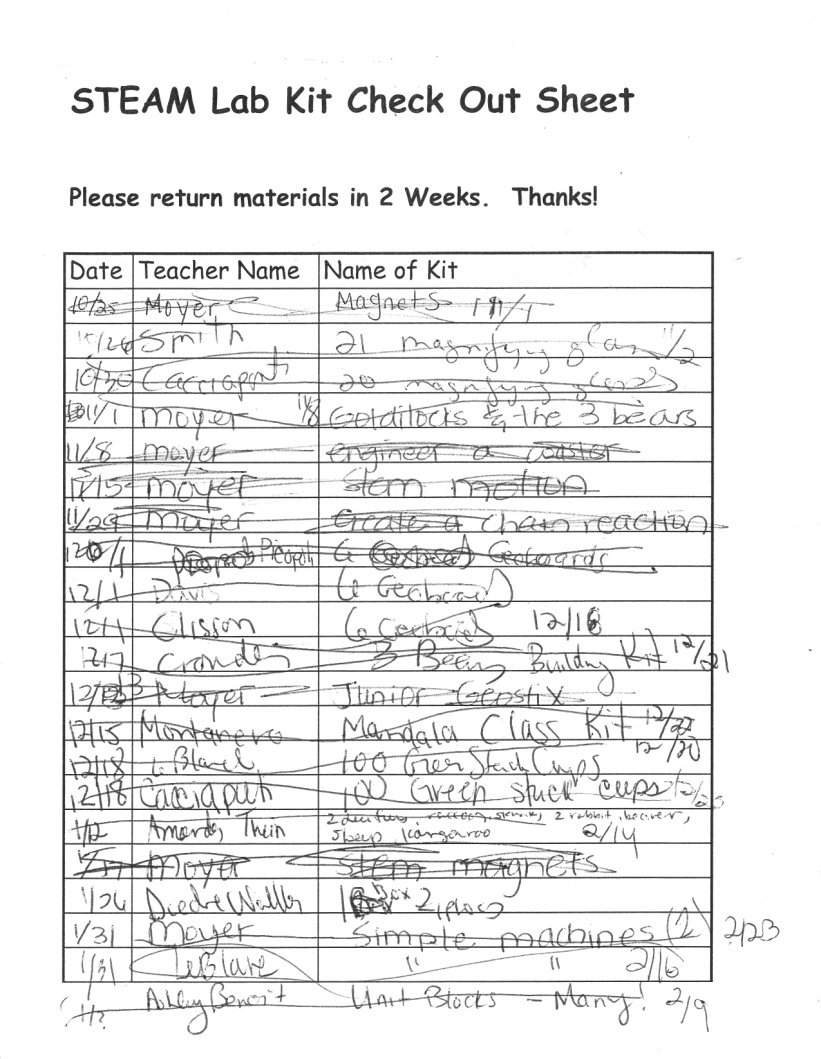 STEAM Lab Kit Check Out Sheet
Please return materials in 2 Weeks. Thanks!
Date Teacher Name Name of Kit
10/25 Moyer Magnets 11/1
10/26 Smith 21 magnifying glass 11/2
10/30 Cacciaputi 20 magnifying glasses
11/1 moyer 11/8 Goldilocks & the 3 bears
11/8 moyer engineer a coaster
11/15 moyer Stem motion
11/29 Moyer Create a chain reaction
12/1 6 Geoboards
12/1 Davis 6 Geoboard
12/1 Clisson 6 Geoboards 12/18
12/7 3 Bears Building Kit 12/21
Moyer Junior Geostix
12/15 Montanero Mandala Class Kit 12/22
12/18 LeBlanc 100 Green Stack Cups 12/20
12/18 Cacciaputi 100 Green stack cups
1/2 Amanda Thein 2 rabbit, beaver,
sheep, kangaroo 2/14
Moyer Stem magnets
1/26 Deedre Waller Box Ziplocs
1/31 Moyer Simple machines (2) 2/23
1/31 LeBlanc " " 2/16
Ashley Benoit Unit Blocks - Many! 2/9